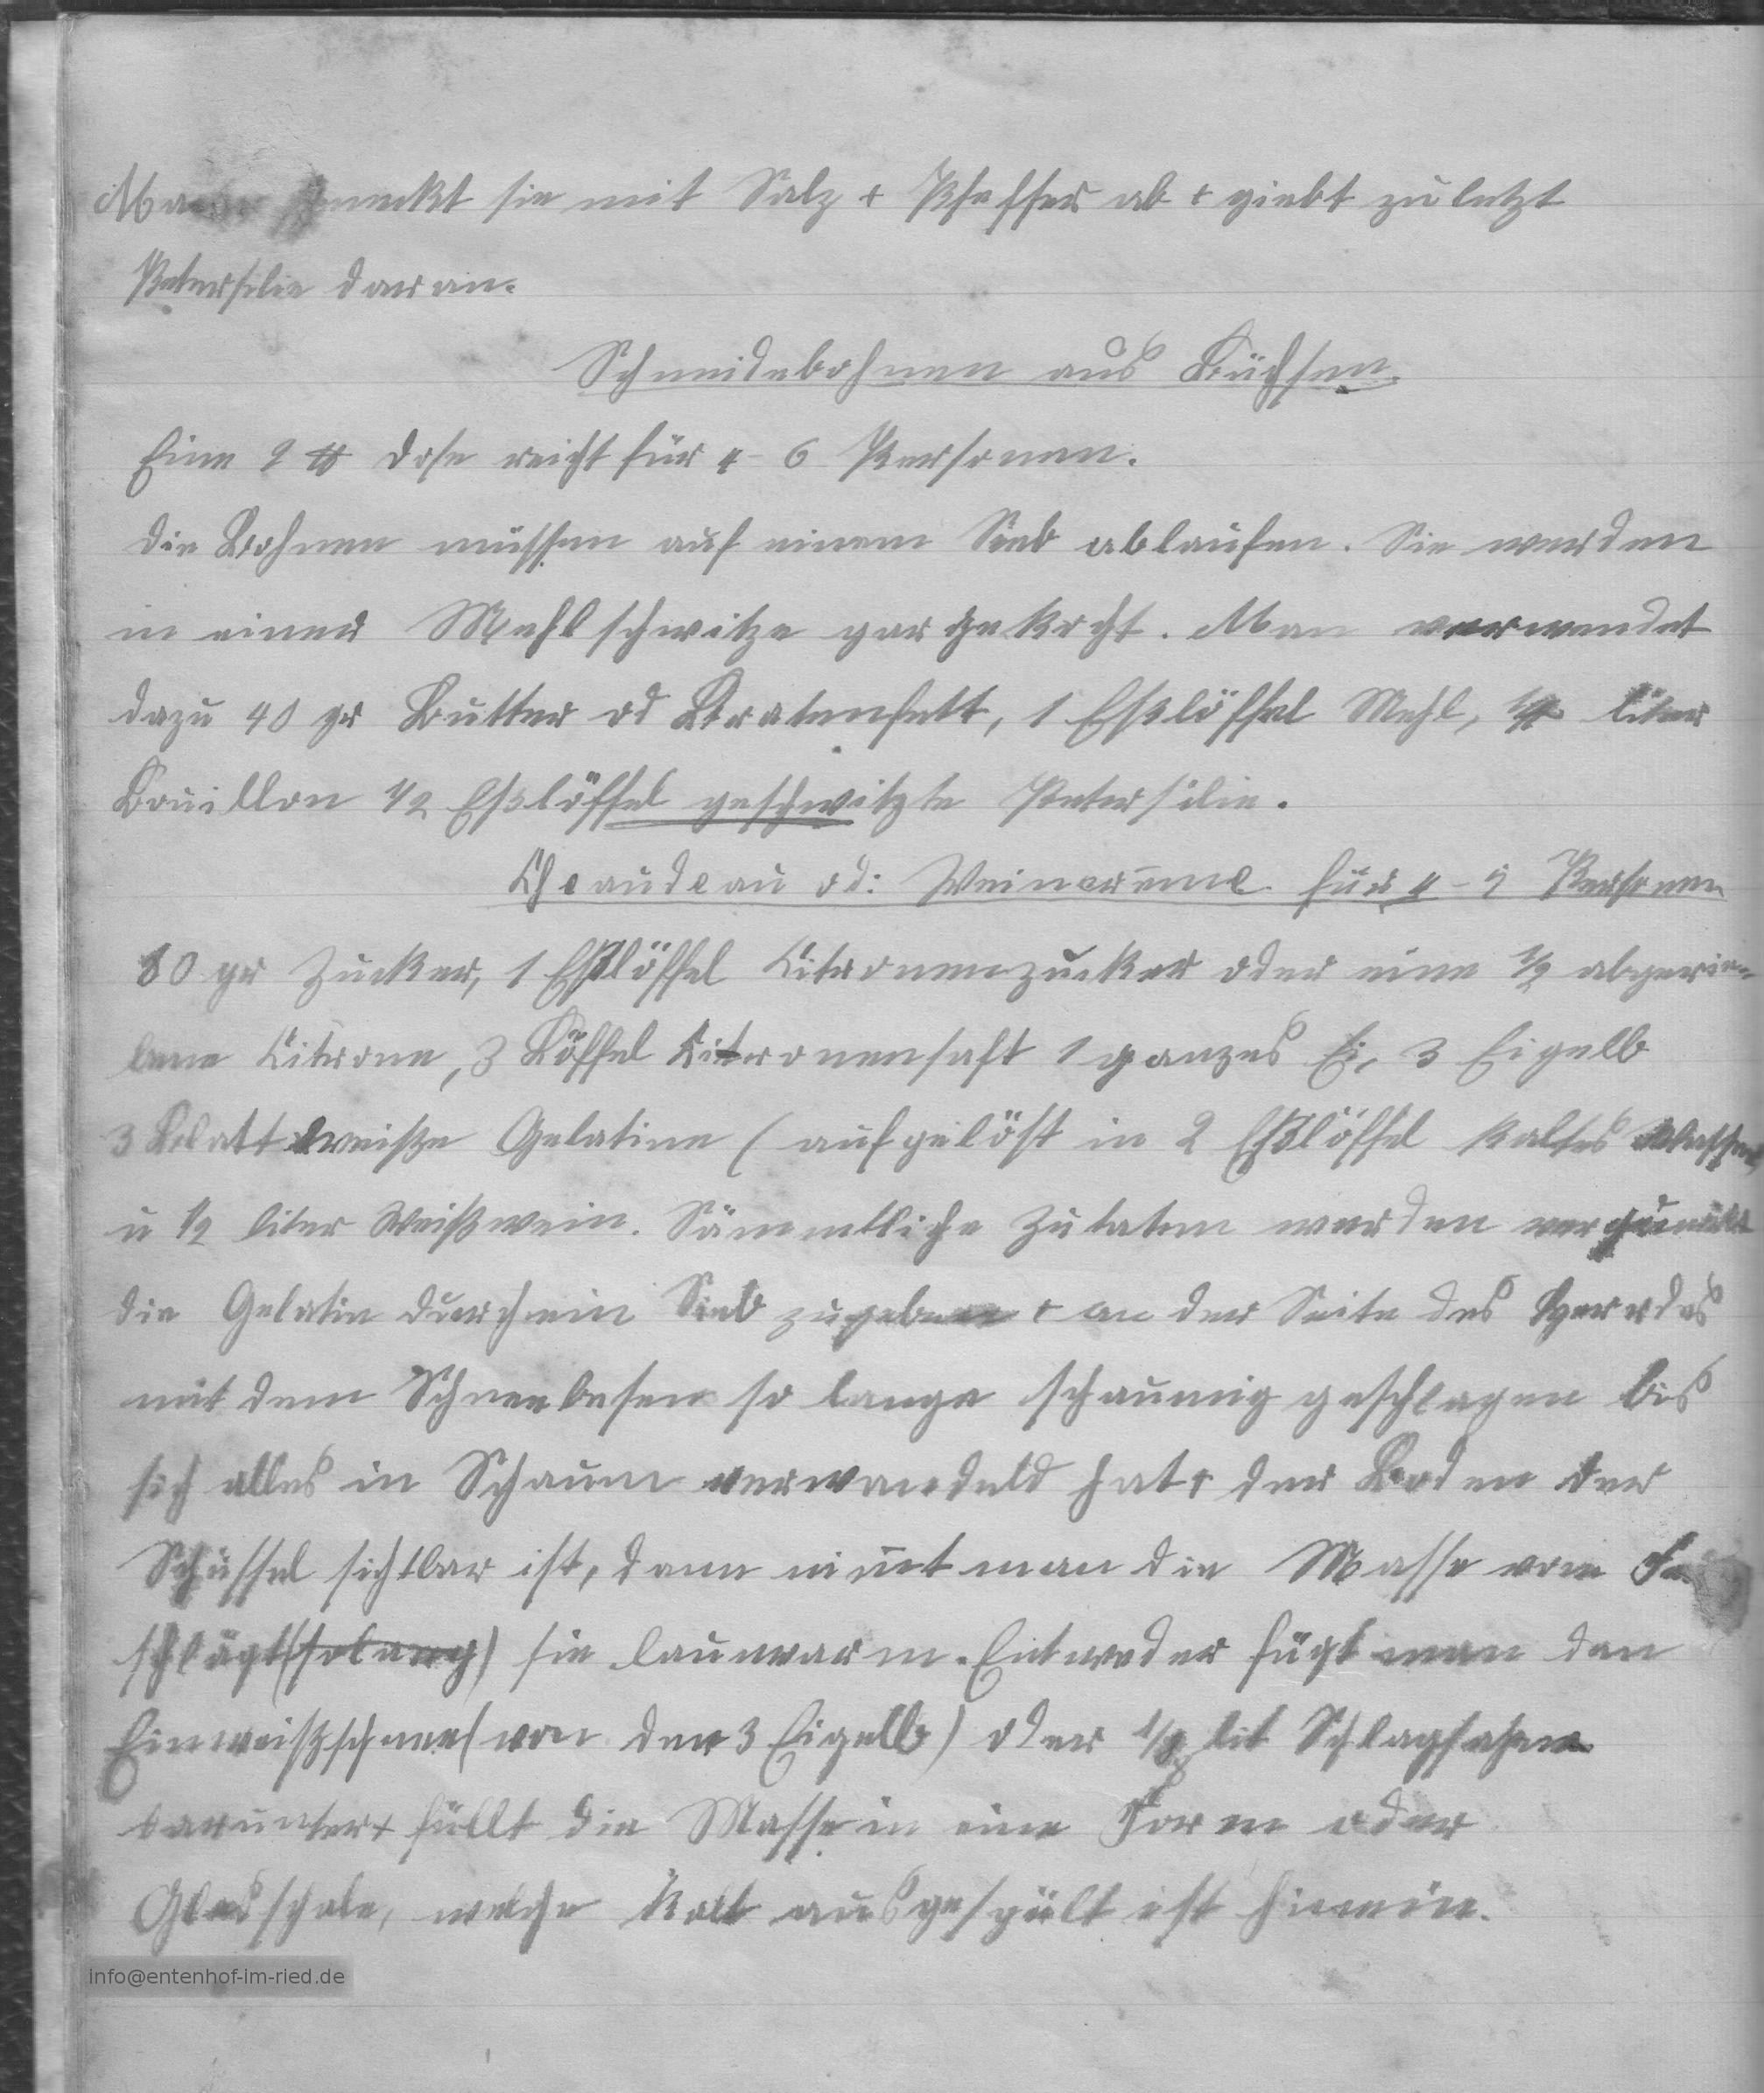 Man schmeckt sie mit Salz + Pfeffer ab + giebt zuletzt
Petersilie daran.
Schneidebohnen aus Büchsen.
Eine 2 ℔ Dose reicht für 4-6 Personen.
Die Bohnen müssen auf einem Sieb ablaufen. Sie werden
in einer Mehlschwitze gar gekocht. Man verwendet
dazu 40 gr Butter od Bratenfett, 1 Eßlöffel Mehl, 1/4 liter
Bouillon 1/2 Eßlöffel geschwitzte Petersilie.
Cheaudeau od: Weincrème für 4-5 Personen
80 gr Zucker, 1 Eßlöffel Citronenzucker oder eine 1/2 abgerie-
bene Citrone, 3 Löffel Citronensaft 1 ganzes Ei, 3 Eigelb
3 Blatt weiße Gelatine (aufgelöst in 2 Eßlöffel kaltes Wasser
u 1/2 liter Weißwein. Sämmtliche Zutaten werden verquirlt
die Gelatin durch ein Sieb zugeben + an der Seite des Herdes
mit dem Schneebesen so lange schaumig geschlagen bis
sich alles in Schaum verwandeld hat + der Boden der
Schüssel sichtbar ist, dann nim̄t man die Masse vom
schlägt (solang) sie lauwarm. Entweder fügt man den
Eiweißschnee (von den 3 Eigelb) oder 1/8 lit Schlagsahne
darunter + füllt die Masse in eine Form oder
Glasschale, welche kalt ausgespült ist hinein.
info@entenhof-im-ried.de